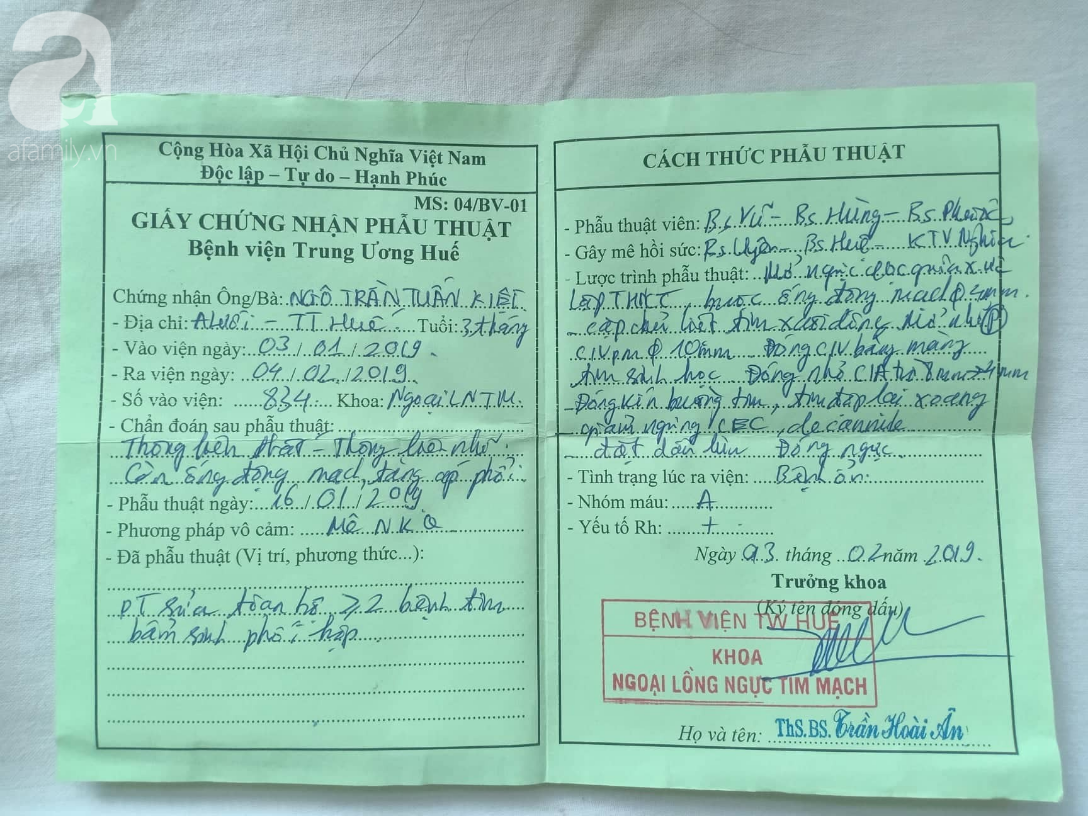 a
afamily.vn
Cộng Hòa Xã Hội Chủ Nghĩa Việt Nam
Độc lập – Tự do – Hạnh Phúc
MS: 04/BV-01
GIẤY CHỨNG NHẬN PHẪU THUẬT
Bệnh viện Trung Ương Huế
Chứng nhận Ông/Bà: NGÔ TRẦN TUẤN KIỆT
- Địa chỉ: A Lưới - TT Huế Tuổi: 3 tháng
- Vào viện ngày: 03 / 01 / 2019
- Ra viện ngày: 04 / 02 / 2019
- Số vào viện: 834 Khoa: Ngoại LNTM
- Chẩn đoán sau phẫu thuật:
Thông liên thất - Thông liên nhĩ
Còn ống động mạch, tăng áp phổi
- Phẫu thuật ngày: 16 / 01 / 2019
- Phương pháp vô cảm: Mê NKQ
- Đã phẫu thuật (Vị trí, phương thức...):
PT sửa toàn bộ ≥2 bệnh tim
bẩm sinh phối hợp
CÁCH THỨC PHẪU THUẬT
- Phẫu thuật viên: Bs Vũ - Bs. Hùng - Bs. Phước
- Gây mê hồi sức: Bs. Uyên Bs. Huê - KTV Nghĩa
- Lược trình phẫu thuật: Mở ngực dọc giữa x. ức
Lập THNCT, buộc ống động mạch φ 4mm
cặp chủ liệt tim Mở nhĩ P
CIV pm φ 10mm Đóng CIV bằng màng
tim sinh học Đóng nhỏ CIA từ 8mm → 4mm
Đóng kín buồng tim, tim đập lại xoang
ngưng CEC, decannule
đặt dẫn lưu Đóng ngực
- Tình trạng lúc ra viện: Bệnh ổn
- Nhóm máu: A
- Yếu tố Rh: +
Ngày 03 tháng 02 năm 2019.
Trưởng khoa
(Ký tên đóng dấu)
BỆNH VIỆN TW HUẾ
KHOA
NGOẠI LỒNG NGỰC TIM MẠCH
Họ và tên: ThS.BS. Trần Hoài Ân